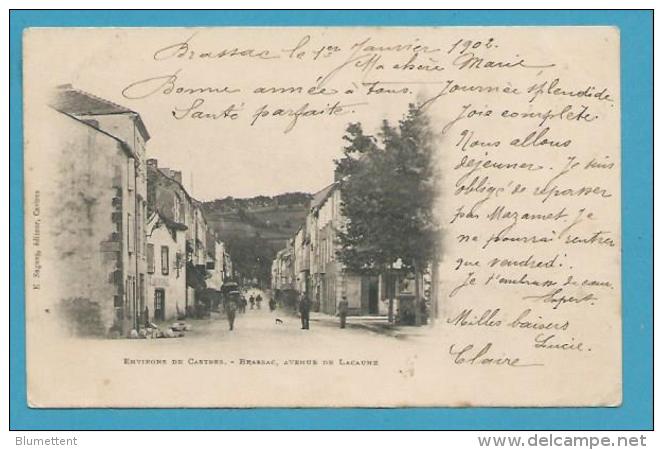 Brassac le 1er Janvier 1902.
Ma chère Marie
Bonne année à tous.
Santé parfaite
Journée splendide
Joie complète
Nous allons
déjeuner. Je suis
obligé de repasser
par Mazamet. Je
ne pourrai rentrer
que vendredi.
Je t'embrasse de cœur
Milles baisers
Lucie.
Claire
E. Saguey, éditeur, Castres
ENVIRONS DE CASTRES. - BRASSAC, AVENUE DE LACAUNE
Blumettent
http://www.delcampe.net